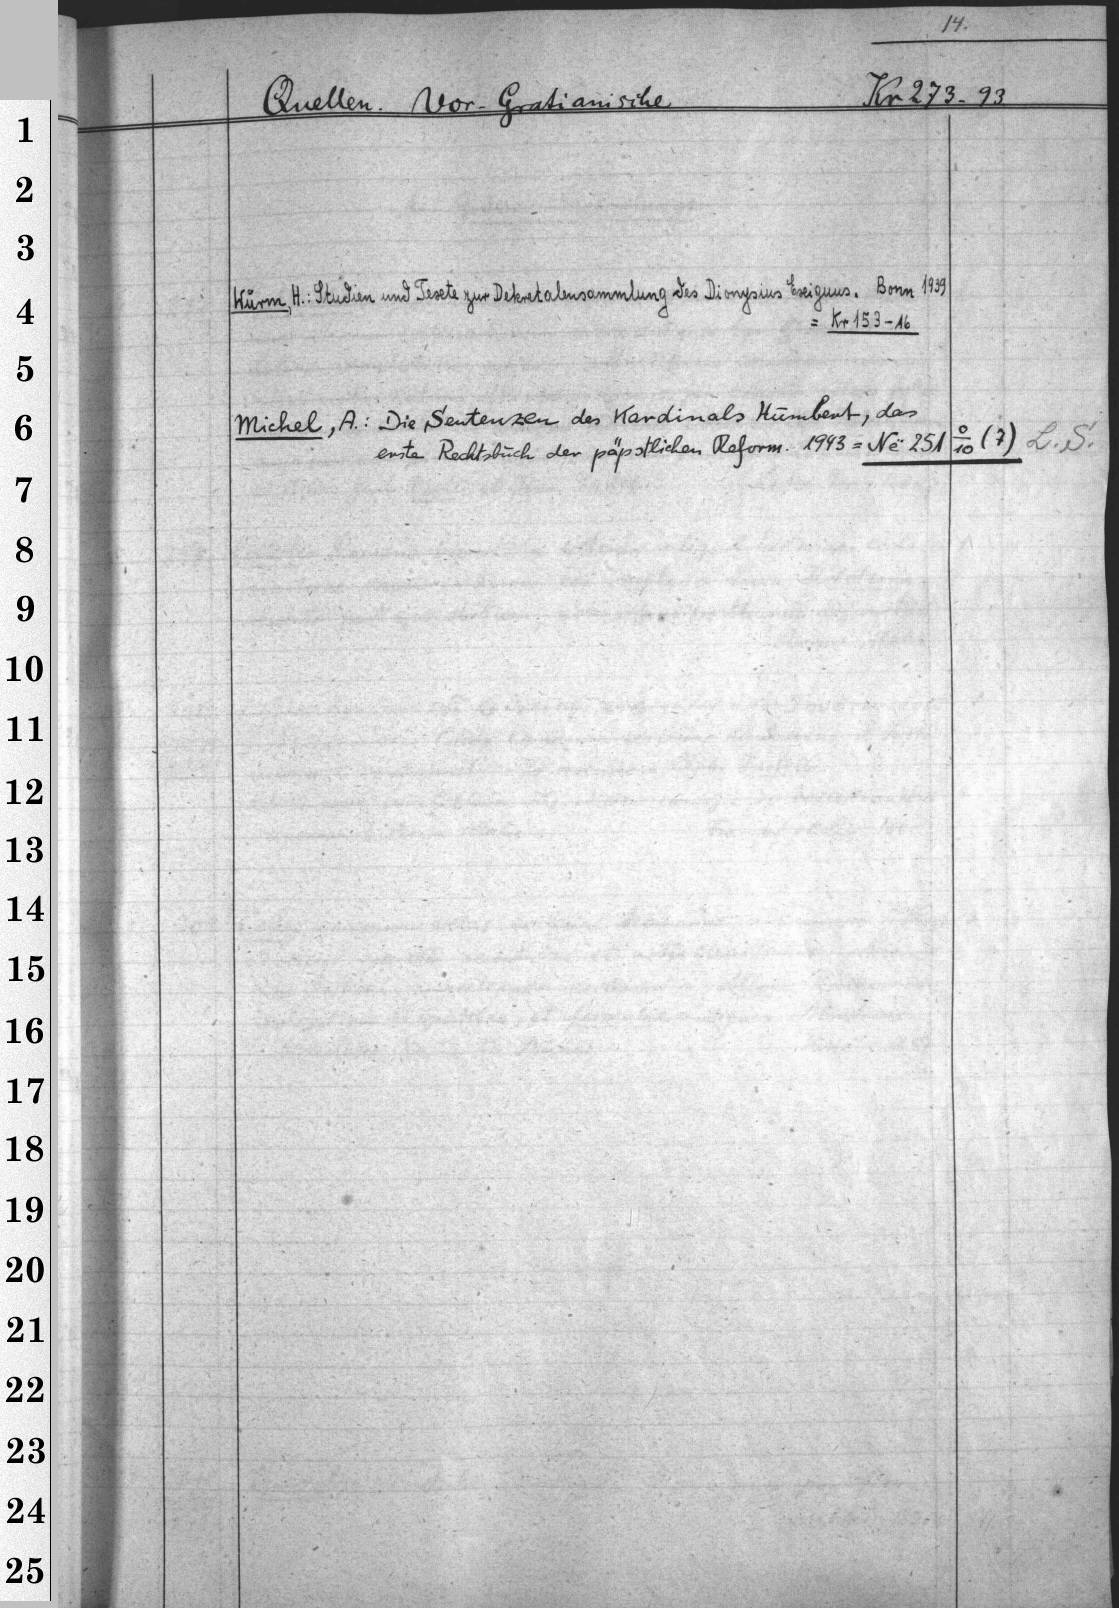 14.
Quellen. Vor-Gratianische Kr 273-93
1
2
3
Wurm, H.: Studien und Texte zur Dekretalensammlung des Dionysius Exiguus. Bonn 1939
4
= Kr 153-16
5
6
Michel, A.: Die Sentenzen des Kardinals Humbert, das
erste Rechtsbuch der päpstlichen Reform. 1943 = Ne 251 0/10 (7) L.S.
7
8
9
10
11
12
13
14
15
16
17
18
19
20
21
22
23
24
25